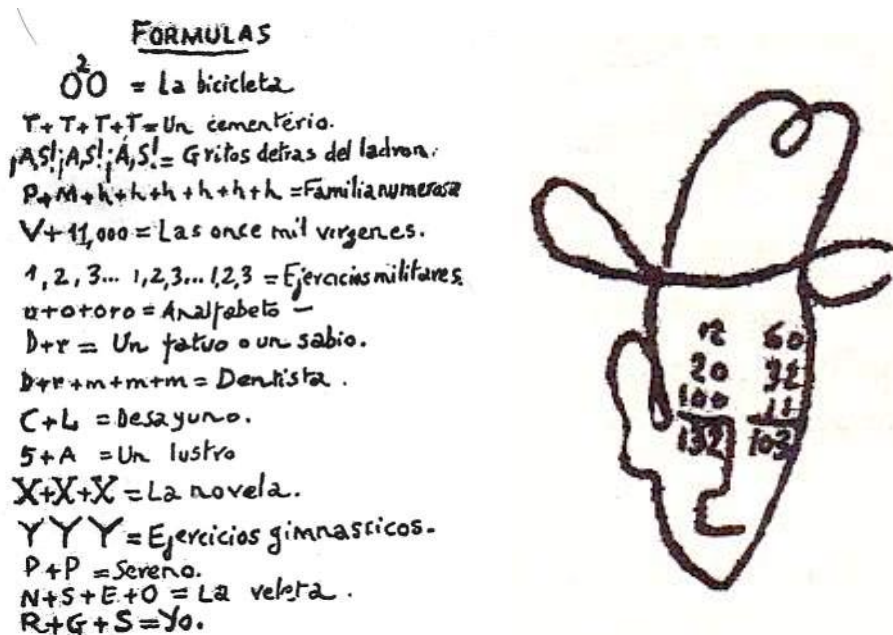 FORMULAS
O²O = La bicicleta
T+T+T+T = Un cementério.
¡A,S!¡A,S!¡A,S! = Gritos detras del ladron.
P+M+h+h+h+h+h+h = Familia numerosa
V+11,000 = Las once mil virgenes.
1, 2, 3... 1,2,3...1,2,3 = Ejercicios militares.
u+o+oro = Analfabeto –
D+r = Un fatuo o un sabio.
D+r+m+m+m = Dentista.
C+L = Desayuno.
5+A = Un lustro
X+X+X = La novela.
Y Y Y = Ejercicios gimnasticos.
P+P = Sereno.
N+S+E+O = La veleta.
R+G+S = Yo.
12 60
20 32
100 11
132 103